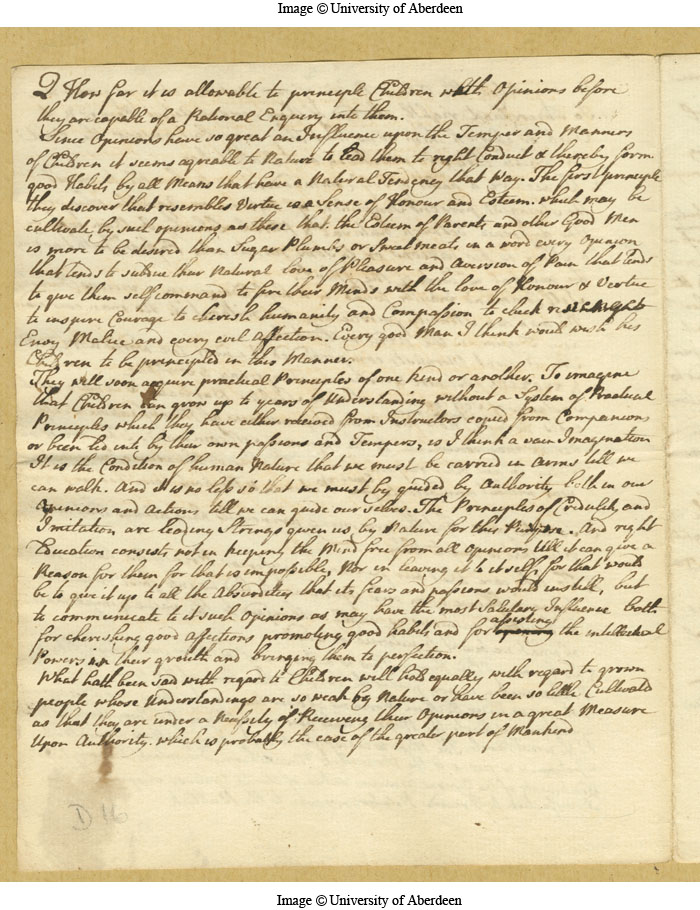 Image © University of Aberdeen
Q How far it is allowable to principle Children with Opinions before
they are capable of a Rational Enquiry into them.
Since Opinions have so great an Influence upon the Temper and Manners
of Children it seems agreable to Nature to lead them to right Conduct & thereby form
good Habits by all Means that have a Natural Tendency that Way. The first principle
they discover that resembles Virtue is a Sense of Honour and Esteem. which may be
cultivate by such opinions as these that the Esteem of Parents and other Good Men
is more to be desired than Sugar Plumbs or Sweet meats in a word every Opinion
that tends to subdue their Natural love of Pleasure and Aversion of Pain that tends
to give them self command to fire their Minds with the love of Honour & Vertue
to inspire Courage to cherish humanity and Compassion to check
Envy Malice and every evil Affection. Every good Man I think would wish his
Children to be principled in this Manner.
They will soon acquire practical Principles of one kind or another. To imagine
that Children can grow up to years of Understanding without a System of Practical
Principles which they have either received from Instructors copied from Companions
or been led into by their own passions and Tempers, is I think a vain Imagination
It is the Condition of human Nature that we must be carried in Arms till we
can walk. And it is no less so that we must be guided by Authority both in our
Opinions and Actions till we can guide our selves. The Principles of Credulity and
Imitation are leading Strings given us by Nature for this Purpose. And right
Education consists not in keeping the Mind free from all Opinions till it can give a
Reason for them for that is impossible, Nor in leaving it to it self, for that would
be to give it up to all the Absurdities that its fears and passions would instill, but
to communicate to it such Opinions as may have the most Salutary Influence both
for cherishing good affections promoting good habits and for assisting the intellectual
Powers in their growth and bringing them to perfection.
What hath been said with regard to Children will hold equally with regard to grown
people whose Understandings are so weak by Nature or have been so little Cultivatd
as that they are under a Necessity of Receiving their Opinions in a great Measure
Upon Authority. which is probably the case of the greater part of Mankind
D 16
Image © University of Aberdeen